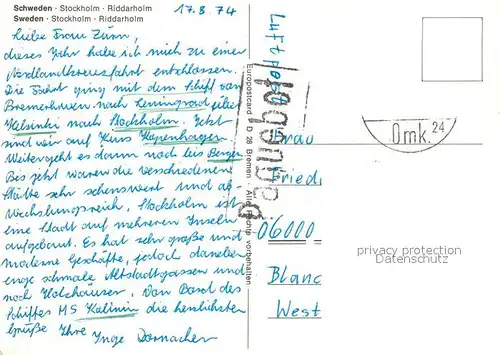 Schweden · Stockholm · Riddarholm
Sweden · Stockholm · Riddarholm
17.8.74
Liebe Frau Zürn,
dieses Jahr habe ich mich zu einer
Nordlandkreuzfahrt entschlossen.
Die Fahrt ging mit dem Schiff von
Bremerhaven nach Leningrad über
Helsinki nach Stockholm. Jetzt
sind wir auf Kurs Kopenhagen
Weiter geht es dann noch bis Bergen
Bis jetzt waren die verschiedenen
Städte sehr sehenswert und ab-
wechslungsreich, Stockholm ist
eine Stadt auf mehreren Inseln
aufgebaut. Es hat sehr große und
moderne Geschäfte, jedoch daneben
enge schmale Altstadtgassen und
noch Holzhäuser. Von Bord des
Schiffes MS Kalinin die herzlichsten
Grüße Ihre Inge Dornacher
Europostcard P D 28 Bremen · Alle Rechte vorbehalten
Luftpost
0mk. 24
Frau
Friedl
06000
Blanc
West
privacy protection
Datenschutz